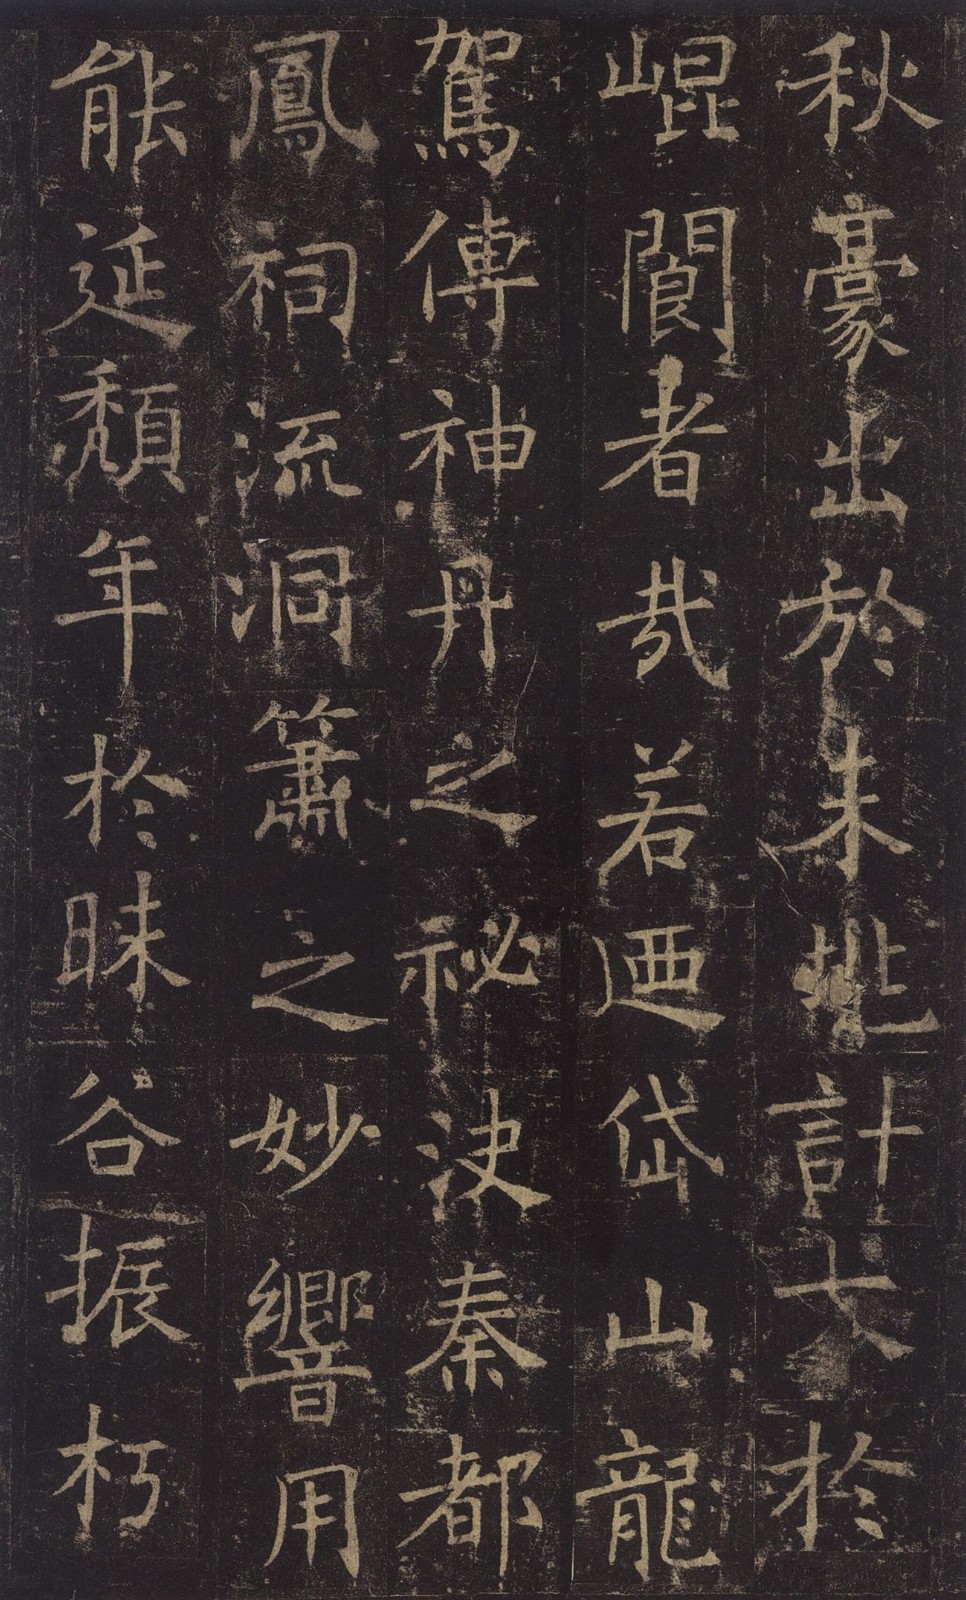 秋豪出於朱坒計大於
崐閬者哉若迺岱山龍
駕傳神丹之祕決秦都
鳳祠流洞簫之妙響用
能延頹年於昧谷振朽